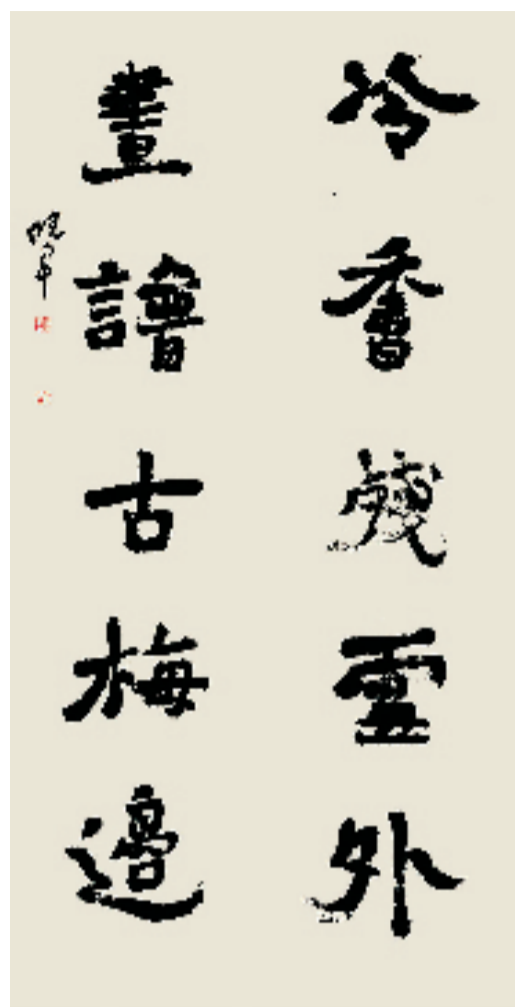 冷香殘雪外
畫譜古梅邊